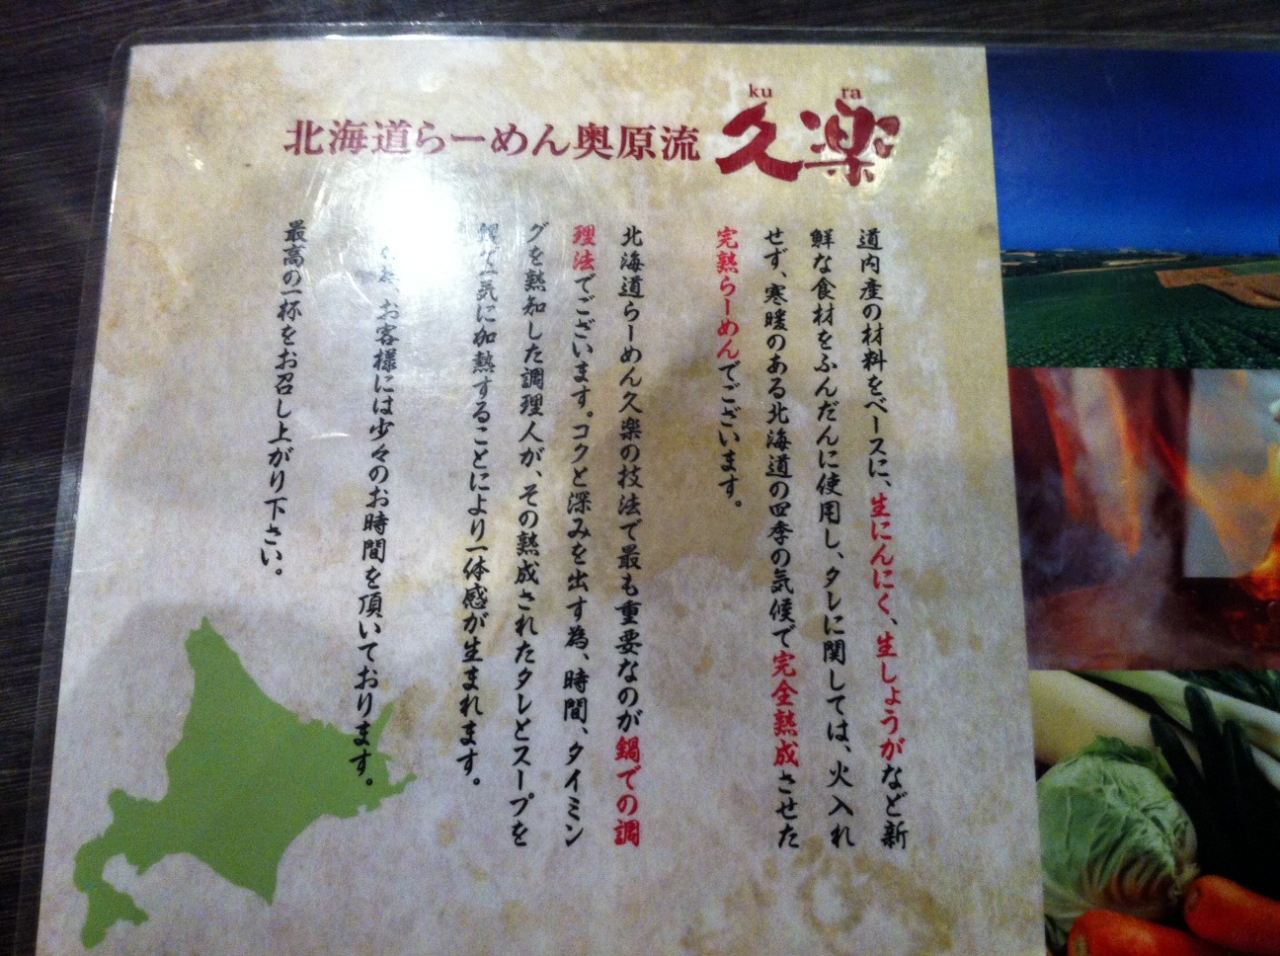 北海道らーめん奥原流 久楽
ku ra
道内産の材料をベースに、生にんにく、生しょうがなど新
鮮な食材をふんだんに使用し、タレに関しては、火入れ
せず、寒暖のある北海道の四季の気候で完全熟成させた
完熟らーめんでございます。
北海道らーめん久楽の技法で最も重要なのが鍋での調
理法でございます。コクと深みを出す為、時間、タイミン
グを熟知した調理人が、その熟成されたタレとスープを
一気に加熱することにより一体感が生まれます。
お客様には少々のお時間を頂いております。
最高の一杯をお召し上がり下さい。